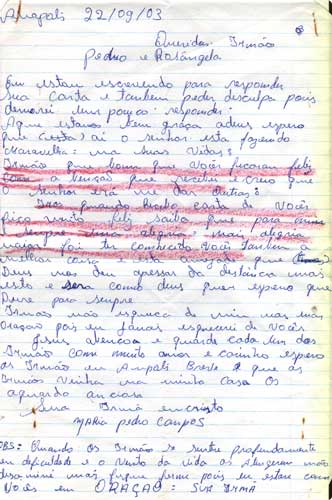 Anapoli 22/09/03
Queridos Irmão
Pedro e Rosângela
Eu estou escrevendo para responder
sua carta e tanbem pedir desculpa pois
demorei um pouco responder:
Aqui estamos bem graça adeus espero
que (        ) ai o senhor esta fazendo
Maravilha: na suas Vidas?
Irmão que bom que vocês ficaram feliz
com a benção que recebi e creio que
o senhor irá me dar outras?
Irmão quando Recebo carta de Vocês
fico muito feliz saiba que para
é sempre uma alegria: mais alegria
maior foi ter conhecido Vocês tanbem a
melhor coisa e esta amizade que
Deus nos deu apessar da distância mais
isto e sera como deus quer espero que
Dure para sempre
Irmão não esqueca de mim nas suas
oração pois eu jamas esquecerei de Vocês
Jesus abencoa e guarde cada um dos
Irmão com muito amor e carinho espero
os Irmão em Anapoli Breve & que os
Irmãos Venha na minha Casa Os
aguardo anciosa
Sua Irmã em cristo
MARIA Pedro CAMPOS
OBS: Quando Os Irmão se sentir profundamente
em dificuldade e o Vento da vida os
mas fique firme pois eu estare com
Vocês em ORAÇAO = SUA IRMÃ